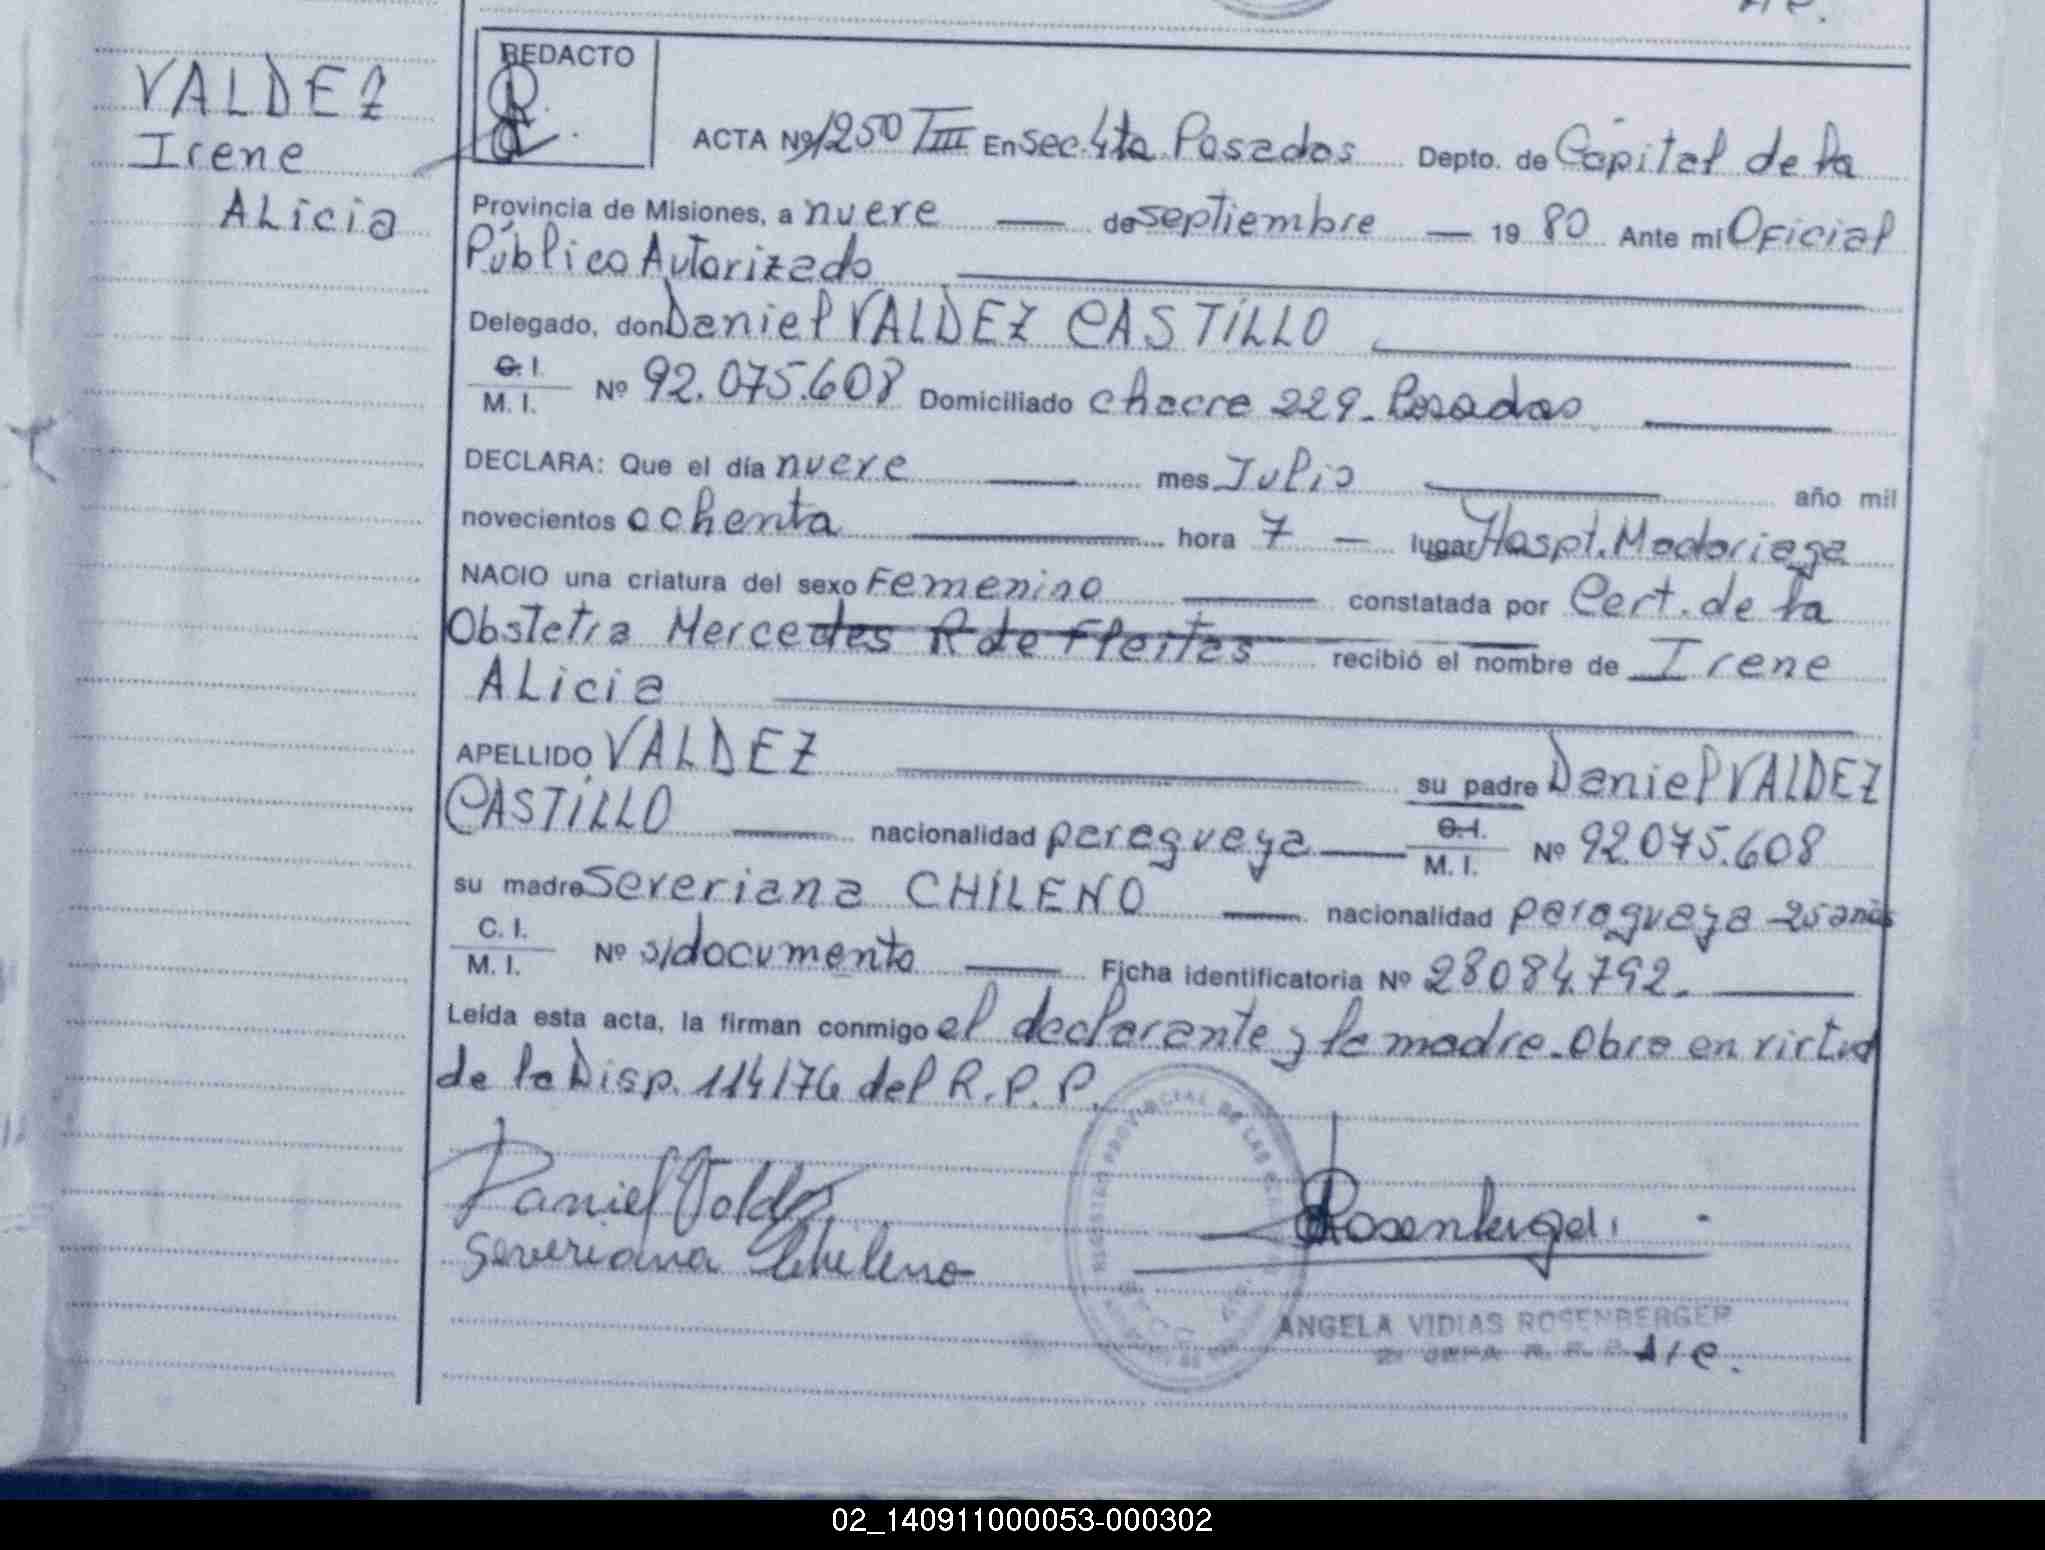 VALDEZ
Irene
ALicia
REDACTO
ACTA Nº 1250 TIII En Sec. 4ta Posadas Depto. de Capital de la
Provincia de Misiones, a nueve — de septiembre — 19 80 Ante mí Oficial
Público Autorizado
Delegado, don Daniel VALDEZ CASTiLLO
C. I.
M. I. Nº 92.075.608 Domiciliado chacra 229 - Posadas
DECLARA: Que el día nueve — mes Julio — año mil
novecientos ochenta — hora 7 — lugar Hospt. Madariaga
NACIO una criatura del sexo Femenino — constatada por Cert. de la
Obstetra Mercedes R de Fleitas recibió el nombre de Irene
ALicia
APELLIDO VALDEZ — su padre Daniel VALDEZ
CASTiLLO — nacionalidad paraguaya — C. I.
M. I. Nº 92.075.608
su madre Severiana CHiLENO — nacionalidad paraguaya 25 años
C. I.
M. I. Nº s/documento — Ficha identificatoria Nº 28084.792.
Leída esta acta, la firman conmigo el declarante y la madre - Obro en virtud
de la Disp. 114/76 del R. P. P.
Daniel Valdez
Severiana Chileno
Rosenberger
REGISTRO PROVINCIAL DE LAS
ANGELA VIDIAS ROSENBERGER
A/C.
02_140911000053-000302